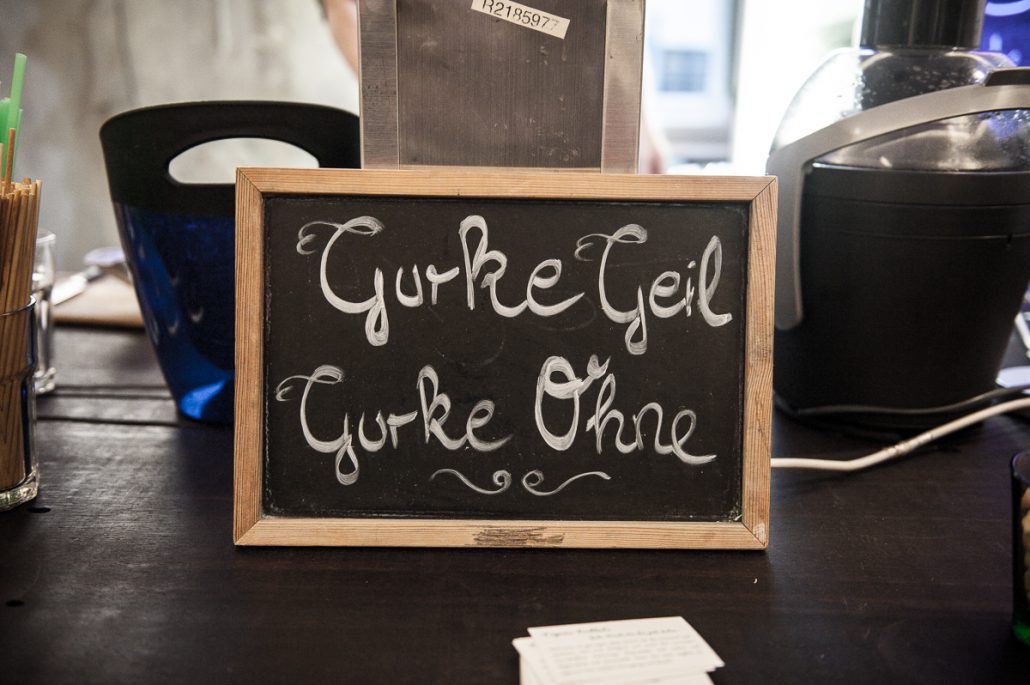 R2185977
Gurke Geil
Gurke Ohne